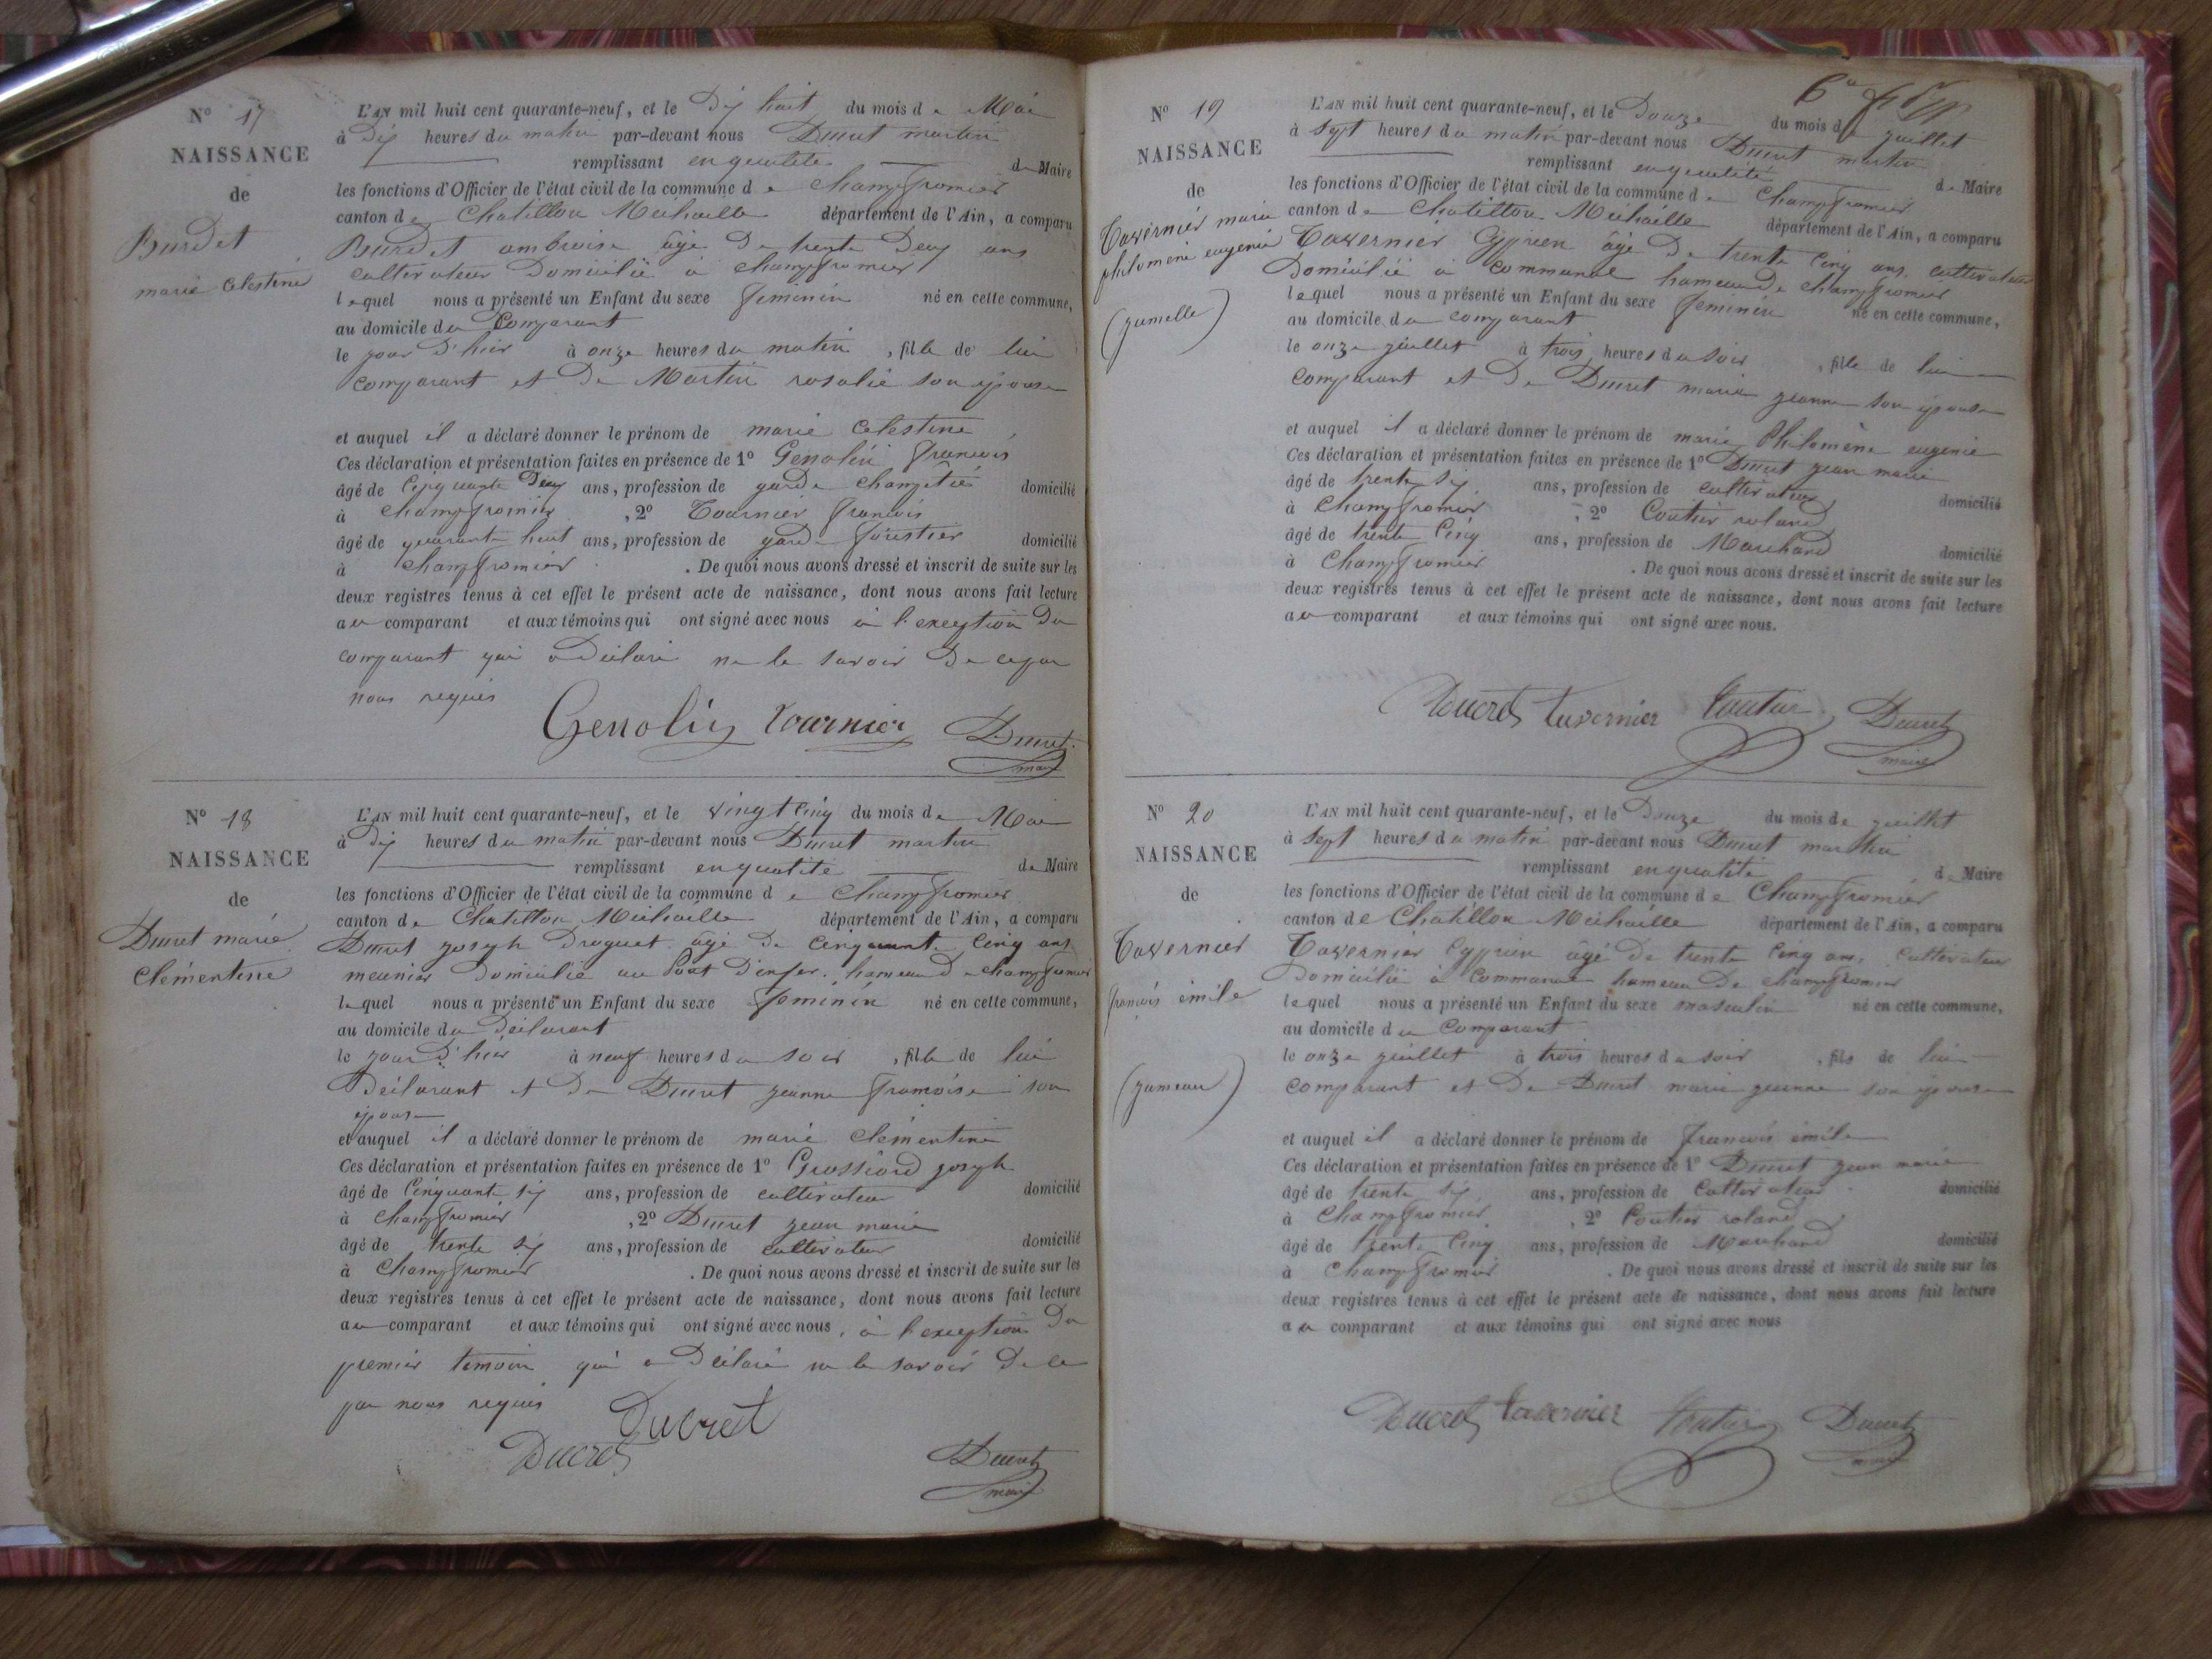 N° 17
NAISSANCE
de
Burdet
marie Celestine
L'AN mil huit cent quarante-neuf, et le Dix huit du mois de Mai
à Dix heures du matin par-devant nous Ducret martin
remplissant en qualité de Maire
les fonctions d'Officier de l'état civil de la commune de Champfromier
canton de Chatillon Michaille département de l'Ain, a comparu
Burdet ambroise âgé De trente Deux ans
cultivateur Domicilié à champfromier
lequel nous a présenté un Enfant du sexe feminin né en cette commune,
au domicile du Comparant
le jour D'hier à onze heures du matin, fille de lui
comparant et De Martin rosalie son épouse
et auquel il a déclaré donner le prénom de marie Celestine
Ces déclaration et présentation faites en présence de 1° Genolin francois
âgé de Cinquante Deux ans, profession de garde Champêtre domicilié
à champfromier, 2° Tournier francois
âgé de quarante huit ans, profession de garde forestier domicilié
à champfromier. De quoi nous avons dressé et inscrit de suite sur les
deux registres tenus à cet effet le présent acte de naissance, dont nous avons fait lecture
au comparant et aux témoins qui ont signé avec nous à l'exception Du
comparant qui a Déclaré ne le savoir De ce par
nous requis
Genolin Tournier Ducret
maire
N° 18
NAISSANCE
de
Ducret marie
Clémentine
L'AN mil huit cent quarante-neuf, et le vingt cinq du mois de Mai
à Dix heures du matin par-devant nous Ducret martin
remplissant en qualité de Maire
les fonctions d'Officier de l'état civil de la commune de Champfromier
canton de Chatillon Michaille département de l'Ain, a comparu
Ducret joseph Droguet âgé De Cinquante Cinq ans
meunier Domicilié au Pont D'enfer hameau De champfromier
lequel nous a présenté un Enfant du sexe feminin né en cette commune,
au domicile du Déclarant
le jour D'hier à neuf heures du soir, fille de lui
Déclarant et De Ducret jeanne francoise son
épouse
et auquel il a déclaré donner le prénom de marie Clémentine
Ces déclaration et présentation faites en présence de 1° Grossiord joseph
âgé de Cinquante six ans, profession de cultivateur domicilié
à Champfromier, 2° Ducret jean marie
âgé de trente six ans, profession de cultivateur domicilié
à Champfromier. De quoi nous avons dressé et inscrit de suite sur les
deux registres tenus à cet effet le présent acte de naissance, dont nous avons fait lecture
au comparant et aux témoins qui ont signé avec nous, à l'exception Du
premier temoin qui a Déclaré ne le savoir De ce
par nous requis
Ducret
Ducret Ducret
maire
N° 19
NAISSANCE
de
Tavernier marie
philomene eugenie
(jumelle)
L'AN mil huit cent quarante-neuf, et le Douze du mois de juillet
à sept heures du matin par-devant nous Ducret martin
remplissant en qualité de Maire
les fonctions d'Officier de l'état civil de la commune de Champfromier
canton de Chatillon Michaille département de l'Ain, a comparu
Tavernier Cyprien âgé De trente Cinq ans, cultivateur
Domicilié à Communal hameau De Champfromier
lequel nous a présenté un Enfant du sexe feminin né en cette commune,
au domicile du comparant
le onze juillet à trois heures du soir, fille de lui
comparant et De Ducret marie jeanne son épouse
et auquel il a déclaré donner le prénom de marie Philomène eugenie
Ces déclaration et présentation faites en présence de 1° Ducret jean marie
âgé de trente six ans, profession de cultivateur domicilié
à Champfromier, 2° Coutier roland
âgé de trente Cinq ans, profession de Marchand domicilié
à Champfromier. De quoi nous avons dressé et inscrit de suite sur les
deux registres tenus à cet effet le présent acte de naissance, dont nous avons fait lecture
au comparant et aux témoins qui ont signé avec nous.
Ducret tavernier Coutier Ducret
maire
N° 20
NAISSANCE
de
Tavernier
francois émile
(jumeau)
L'AN mil huit cent quarante-neuf, et le Douze du mois de juillet
à sept heures du matin par-devant nous Ducret martin
remplissant en qualité de Maire
les fonctions d'Officier de l'état civil de la commune de Champfromier
canton de Chatillon Michaille département de l'Ain, a comparu
Tavernier Cyprien âgé De trente Cinq ans, Cultivateur
Domicilié à Communal hameau De Champfromier
lequel nous a présenté un Enfant du sexe masculin né en cette commune,
au domicile du Comparant
le onze juillet à trois heures du soir, fils de lui
comparant et De Ducret marie jeanne son épouse
et auquel il a déclaré donner le prénom de francois émile
Ces déclaration et présentation faites en présence de 1° Ducret jean marie
âgé de trente six ans, profession de Cultivateur domicilié
à Champfromier, 2° Coutier roland
âgé de trente Cinq ans, profession de Marchand domicilié
à Champfromier. De quoi nous avons dressé et inscrit de suite sur les
deux registres tenus à cet effet le présent acte de naissance, dont nous avons fait lecture
au comparant et aux témoins qui ont signé avec nous
Ducret tavernier Coutier Ducret
maire